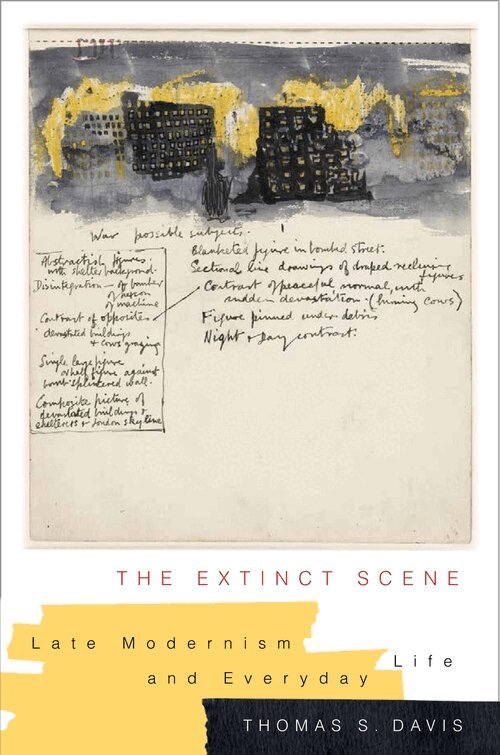 War possible subjects.
Abstractish figures
with shelter background.
Disintegration — of bomber
of person
of machine
Contrast of opposites
devastated buildings
& cows grazing
Single large figure
or half figure against
bomb splintered wall.
Composite picture of
devastated buildings &
shelterers & London skyline
Blanketed figure in bombed street.
Sectional line drawings of draped reclining
figures
Contrast of peaceful normal, with
sudden devastation. (burning cows)
Figure pinned under debris
Night & Day contrast.
THE EXTINCT SCENE
Late Modernism
and Everyday
Life
THOMAS S. DAVIS